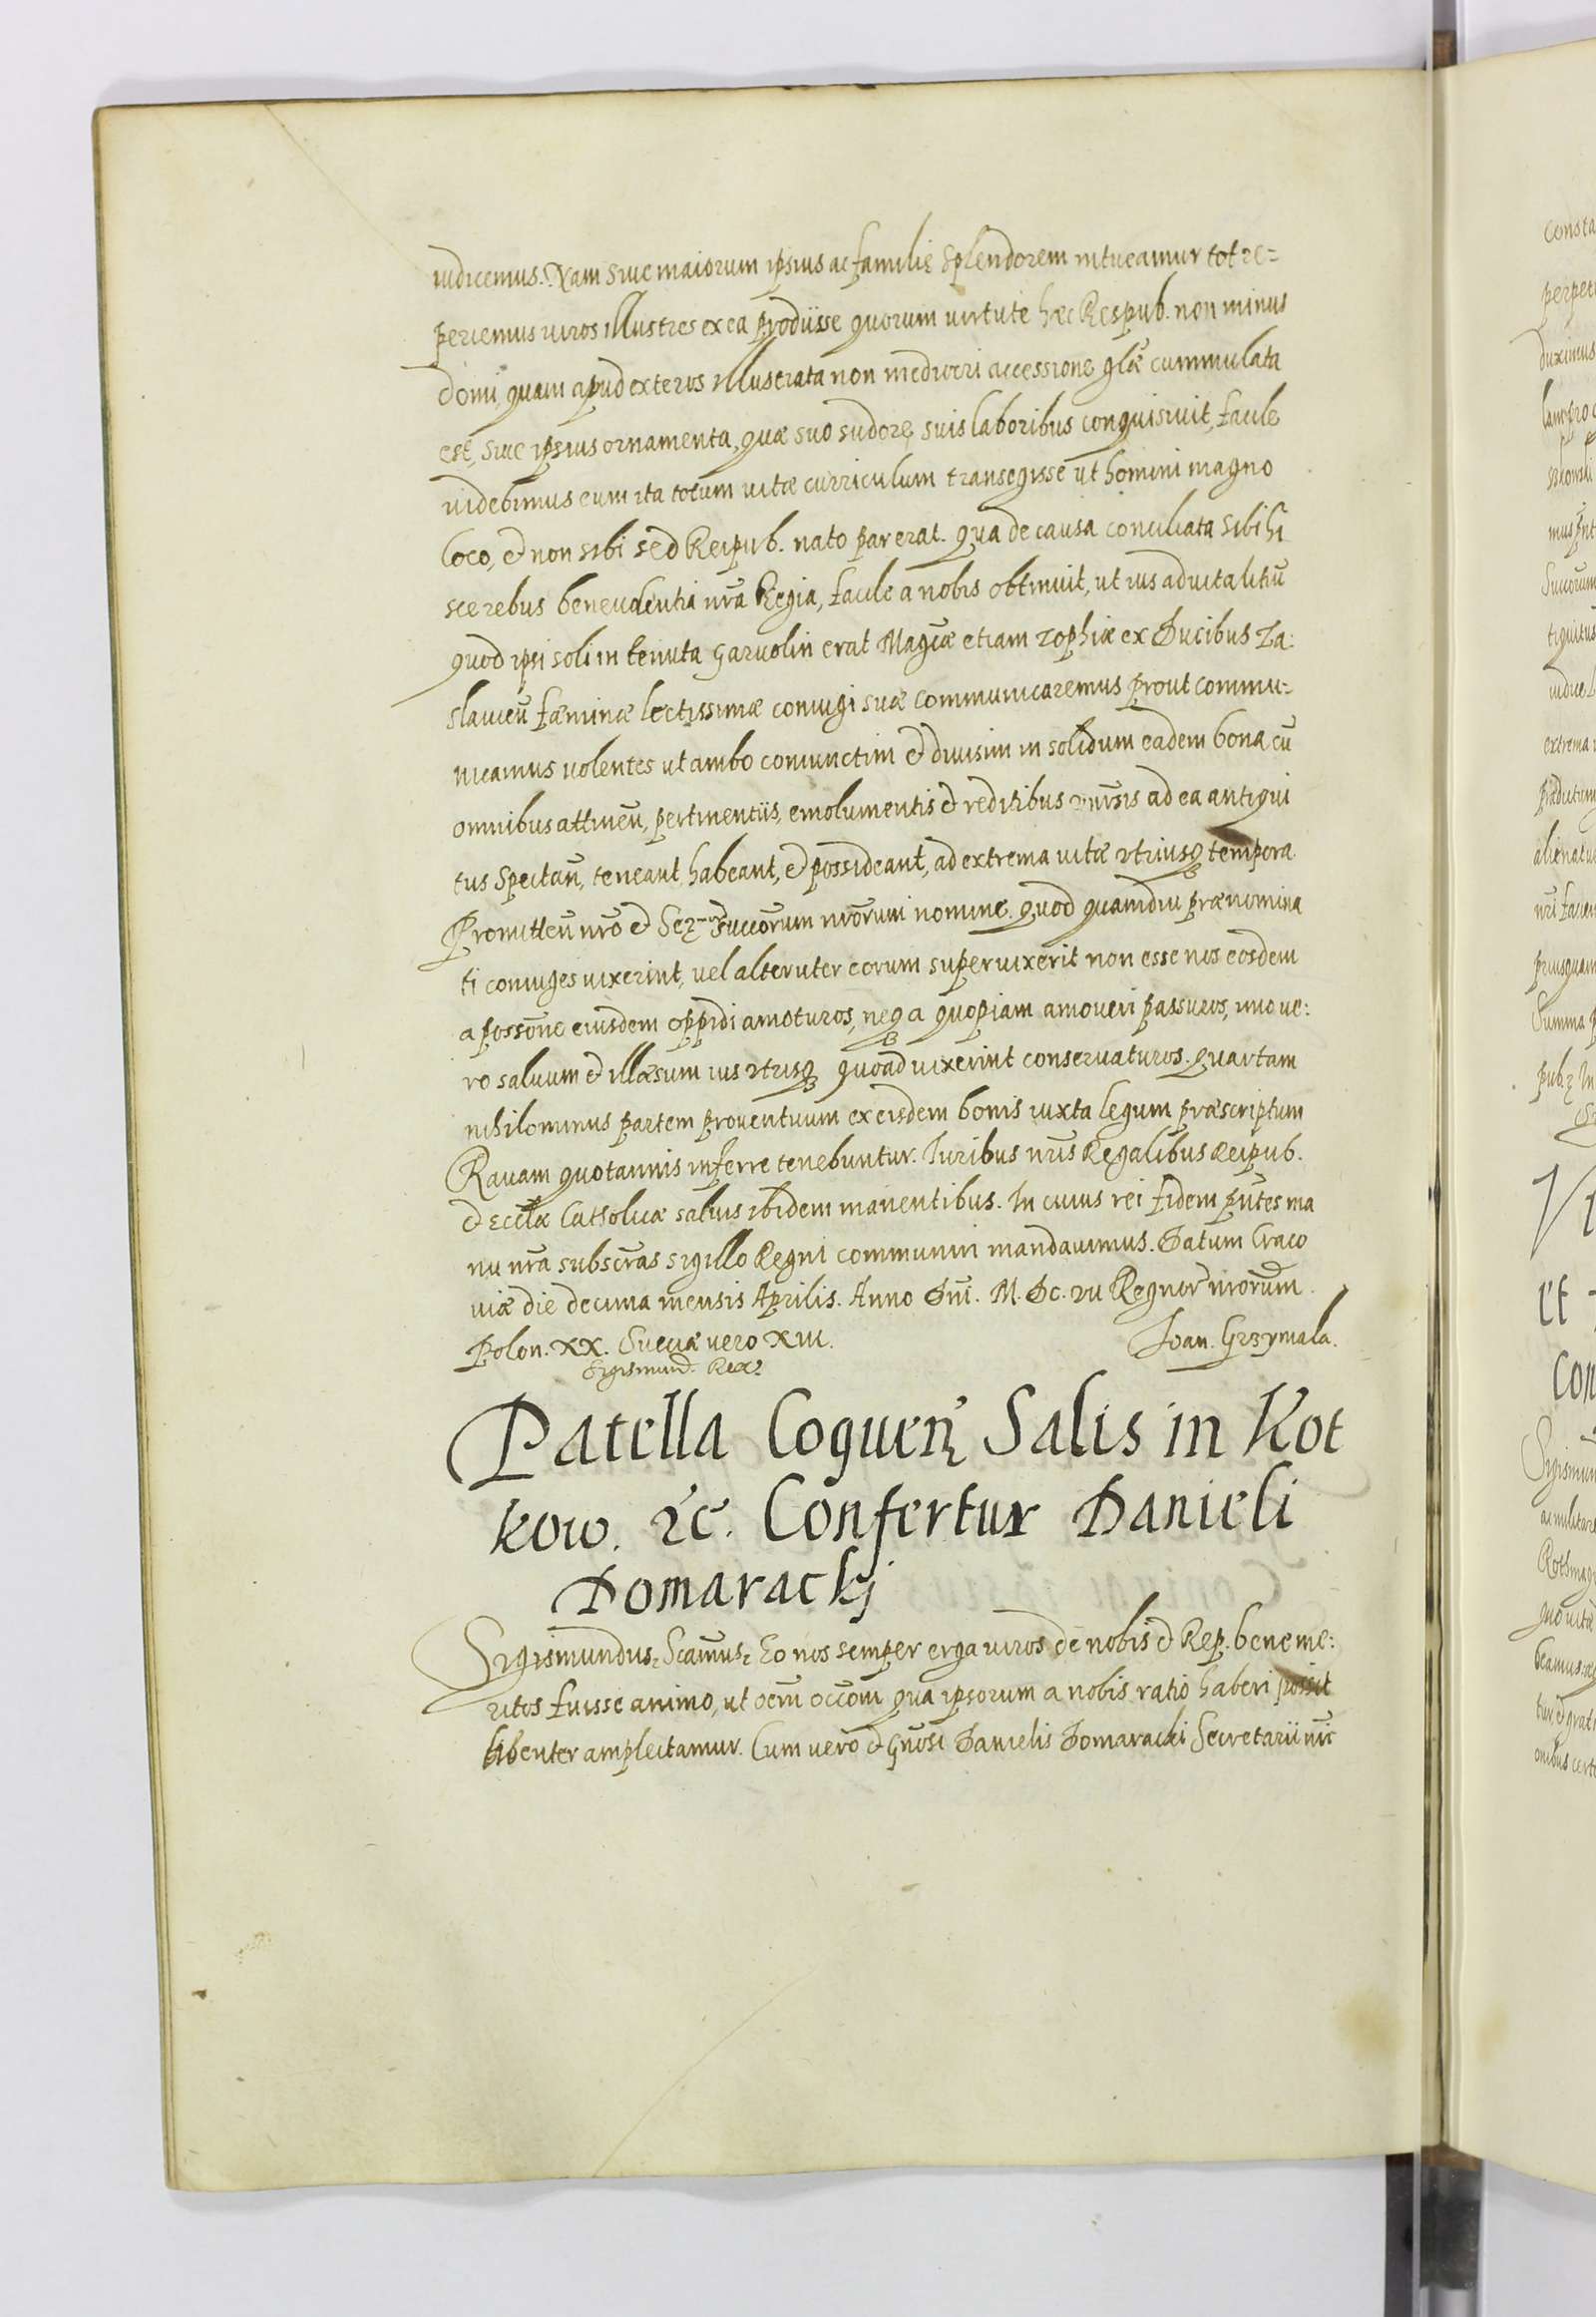 iudicemus. Nam siue maiorum ipsius ac familię splendorem intueamur tot re=
periemus uiros illustres ex ea prodijsse quorum uirtute hæc Respub. non minus
domi, quam apud exteros illustrata non mediocri accessione glæ cummulata
est, siue ipsius ornamenta, quæ suo sudore, suis laboribus conquisiuit, facile
uidebimus eum ita totum uitæ curriculum transegisse ut homini magno
loco, et non sibi sed Reipub. nato par erat. Qua de causa conciliata sibi hi
sce rebus beneuolentia nra Regia, facile a nobis obtinuit, ut ius aduitalitiū
quod ipsi soli in tenuta Garuolin erat Magcæ etiam Zophiæ ex Ducibus Za:
slauieñ fæminæ lectissimæ coniugi suæ communicaremus prout commu:
nicamus uolentes ut ambo coniunctim et diuisim in solidum eadem bona cū
omnibus attineñ, pertinentiis, emolumentis et reditibus unrsis ad ea antiqui
tus spectañ, teneant habeant, et possideant, ad extrema uitæ utriusq tempora.
Promitteñ nro et Ser Succorum nrorum nomine. Quod quamdiu prænomina
ti coniuges uixerint, uel alteruter eorum superuixerit non esse nos eosdem
a possone eiusdem oppidi amoturos, neq a quopiam amoueri passuros, imo ue:
ro saluum et illæsum ius utrisq quoad uixerint conseruaturos. Quartam
nihilominus partem prouentuum ex eisdem bonis iuxta legum præscriptum
Rauam quotannis inferre tenebuntur. Iuribus nris Regalibus Reipub.
et Ecclæ Catholicæ saluis ibidem manentibus. In cuius rei fidem pntes ma
nu nra subscras sigillo Regni communiri mandauimus. Datum Craco
uiæ die decima mensis Aprilis. Anno Dni. M. Dc. vii Regnor nrorum
Polon. XX. Sueciæ uero XIII. Ioan. Grzymala.
Sigismund. Rex
Patella Coquen Salis in Kot
kow. &c. Confertur Danieli
Domaracki
Sigismundus. Scamus. Eo nos semper erga uiros de nobis et Rep. beneme:
ritos fuisse animo, ut oem occom qua ipsorum a nobis ratio haberi possit
libenter amplectamur. Cum uero et Gnosi Danielis Domaracki Secretarii nri